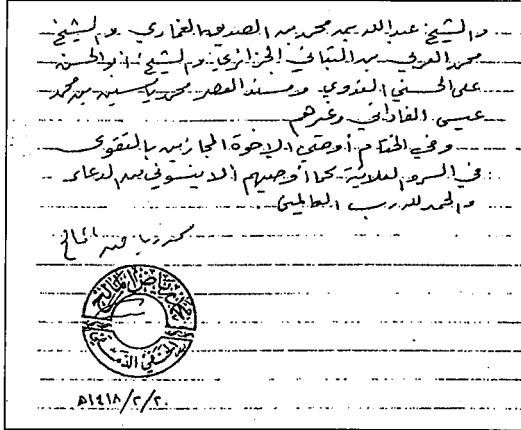 والشيخ عبد الله بن محمد بن الصديق الغماري والشيخ
محمد العربي بن التباني الجزائري والشيخ أبو الحسن
علي الحسني الندوي ومسند العصر محمد ياسين بن محمد
عيسى الفاداني وغيرهم
وفي الختام أوصي الإخوة المجازين بالتقوى
في السر والعلانية كما أوصيهم ألا ينسوني من الدعاء
والحمد لله رب العالمين
محمد رياض المالح
محمد رياض المالح
الحنفي الدمشقي
٢٠/٢/١٤١٨ه